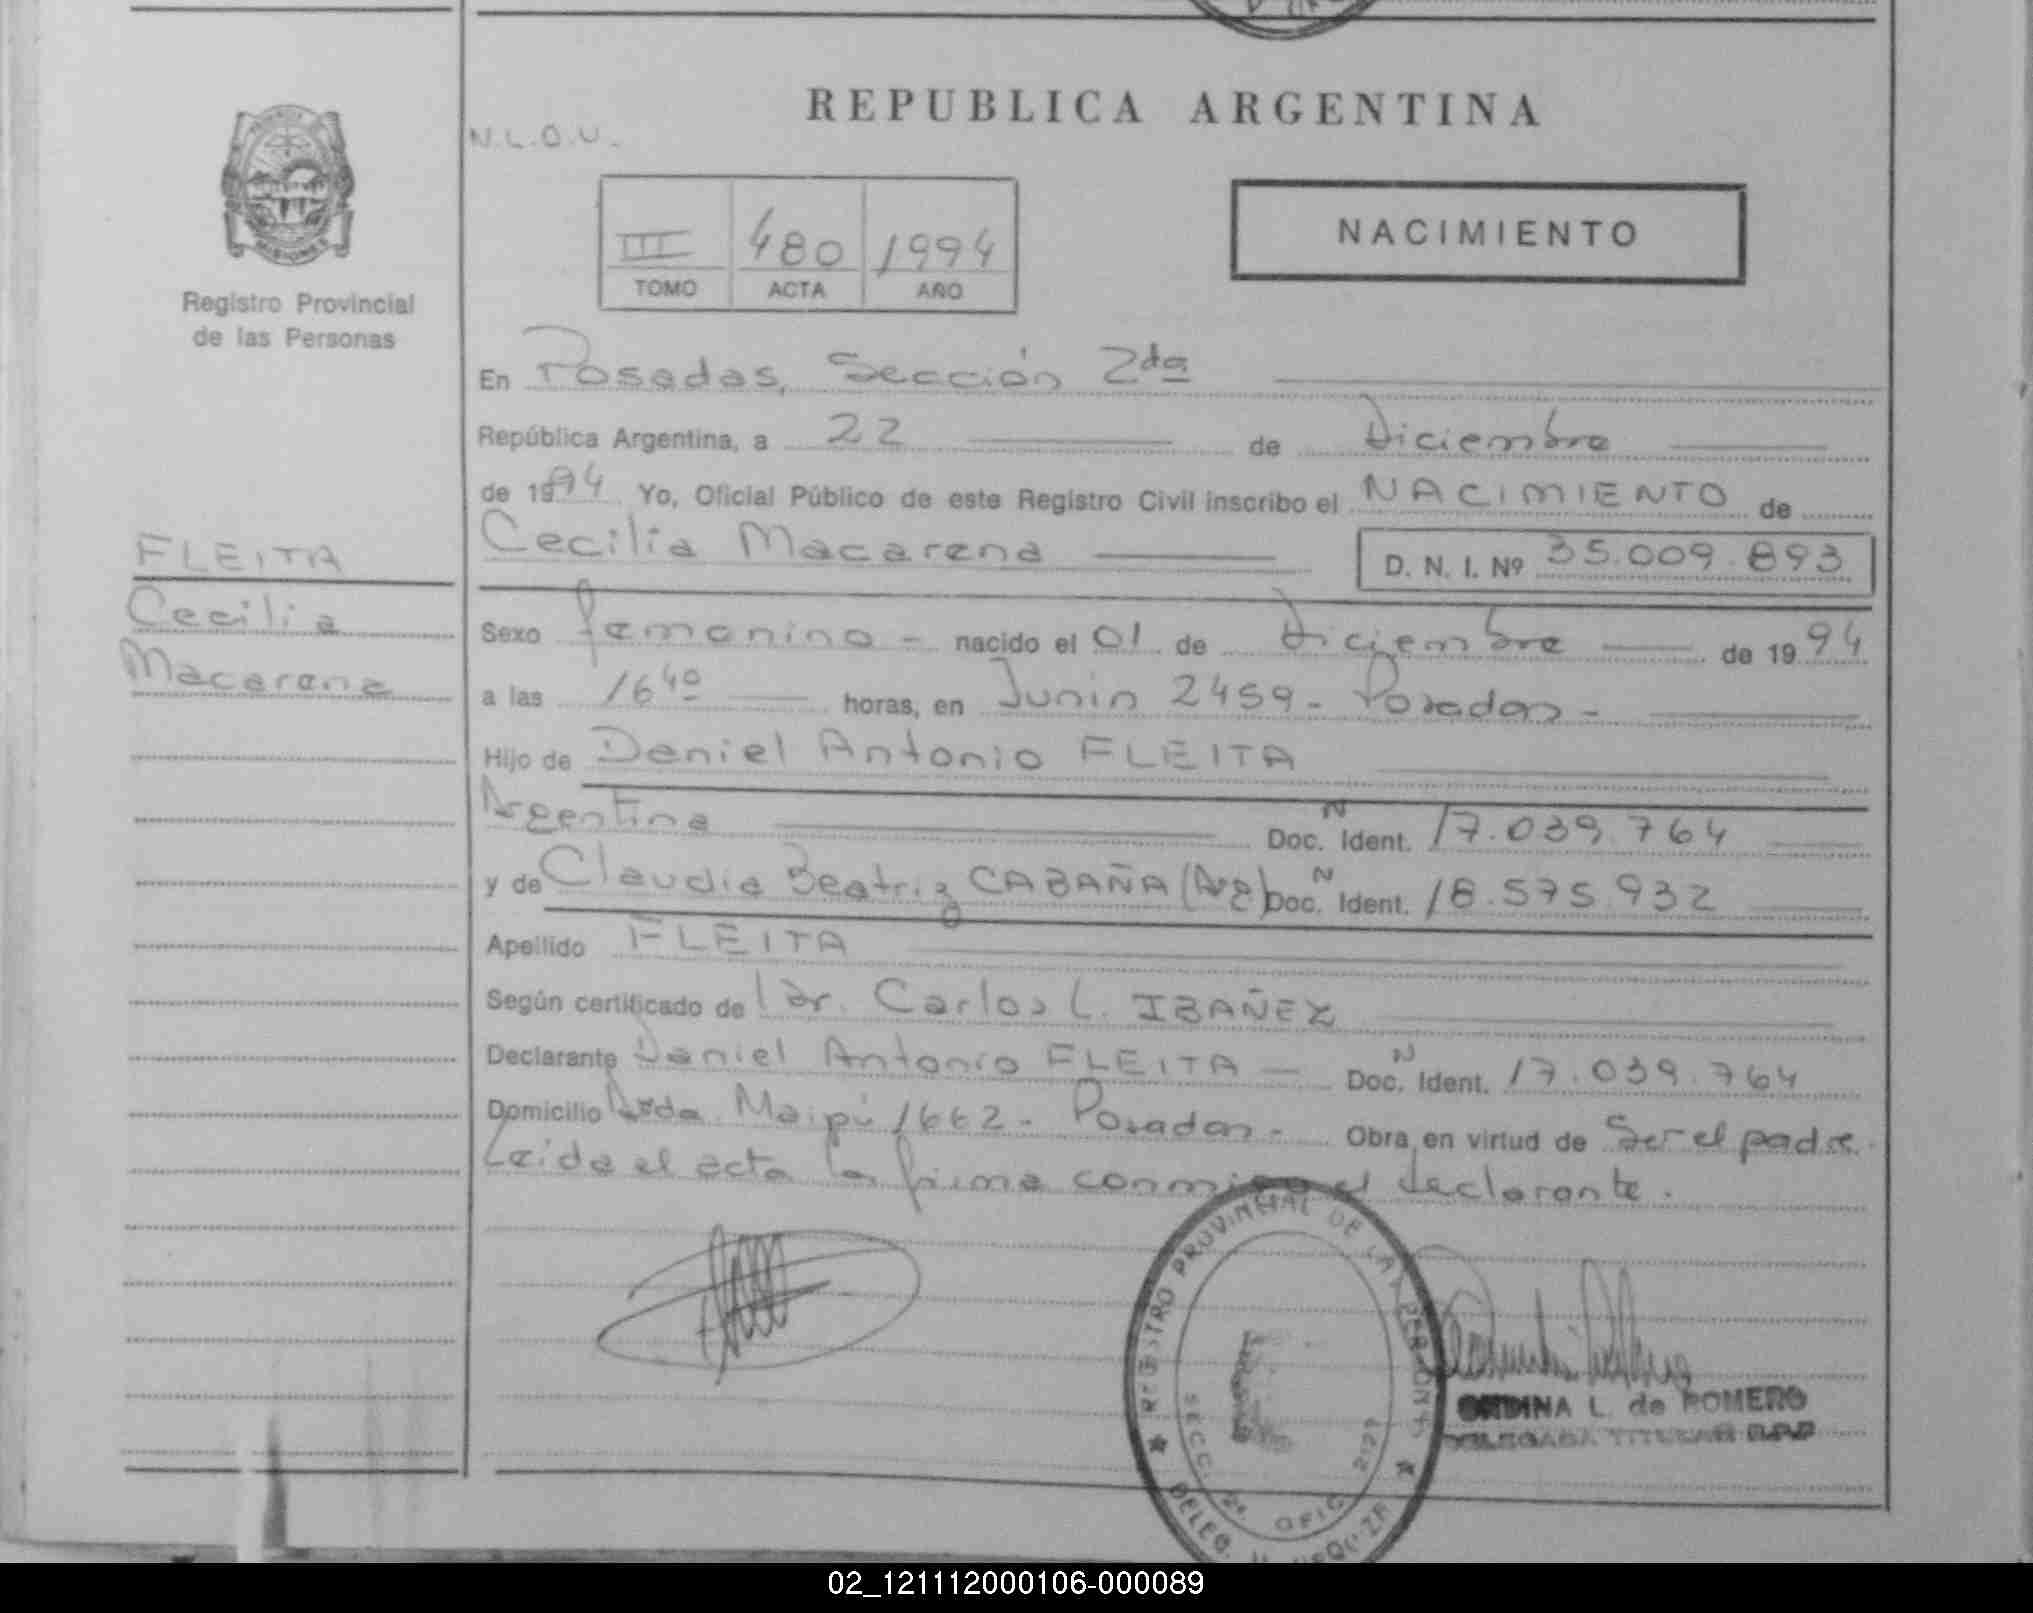 REPUBLICA ARGENTINA
N.L.O.U.
MISIONES
Registro Provincial
de las Personas
III 480 1994
TOMO ACTA AÑO
NACIMIENTO
En Posadas, Sección 2da
República Argentina, a 22 de Diciembre
de 1994 Yo, Oficial Público de este Registro Civil inscribo el NACIMIENTO de
Cecilia Macarena D. N. I. Nº 35.009.893
FLEITA
Cecilia
Macarena
Sexo femenino - nacido el 01 de Diciembre de 1994
a las 16 40 horas, en Junin 2459 - Posadas -
Hijo de Daniel Antonio FLEITA
Argentina Doc. N Ident. 17.039.764
y de Claudia Beatriz CABAÑA (Arg) Doc. N Ident. 18.575.932
Apellido FLEITA
Según certificado de Dr. Carlos L. IBAÑEZ
Declarante Daniel Antonio FLEITA - Doc. N Ident. 17.039.764
Domicilio Avda. Maipú 1662 - Posadas - Obra en virtud de Ser el padre.
Leida el acta la firma conmigo el declarante.
REGISTRO PROVINCIAL DE LAS PERSONAS
SECC. 2ª OFIC.
DELEG.
L. de ROMERO
DELEGADA TITULAR R.P.P.
02_121112000106-000089